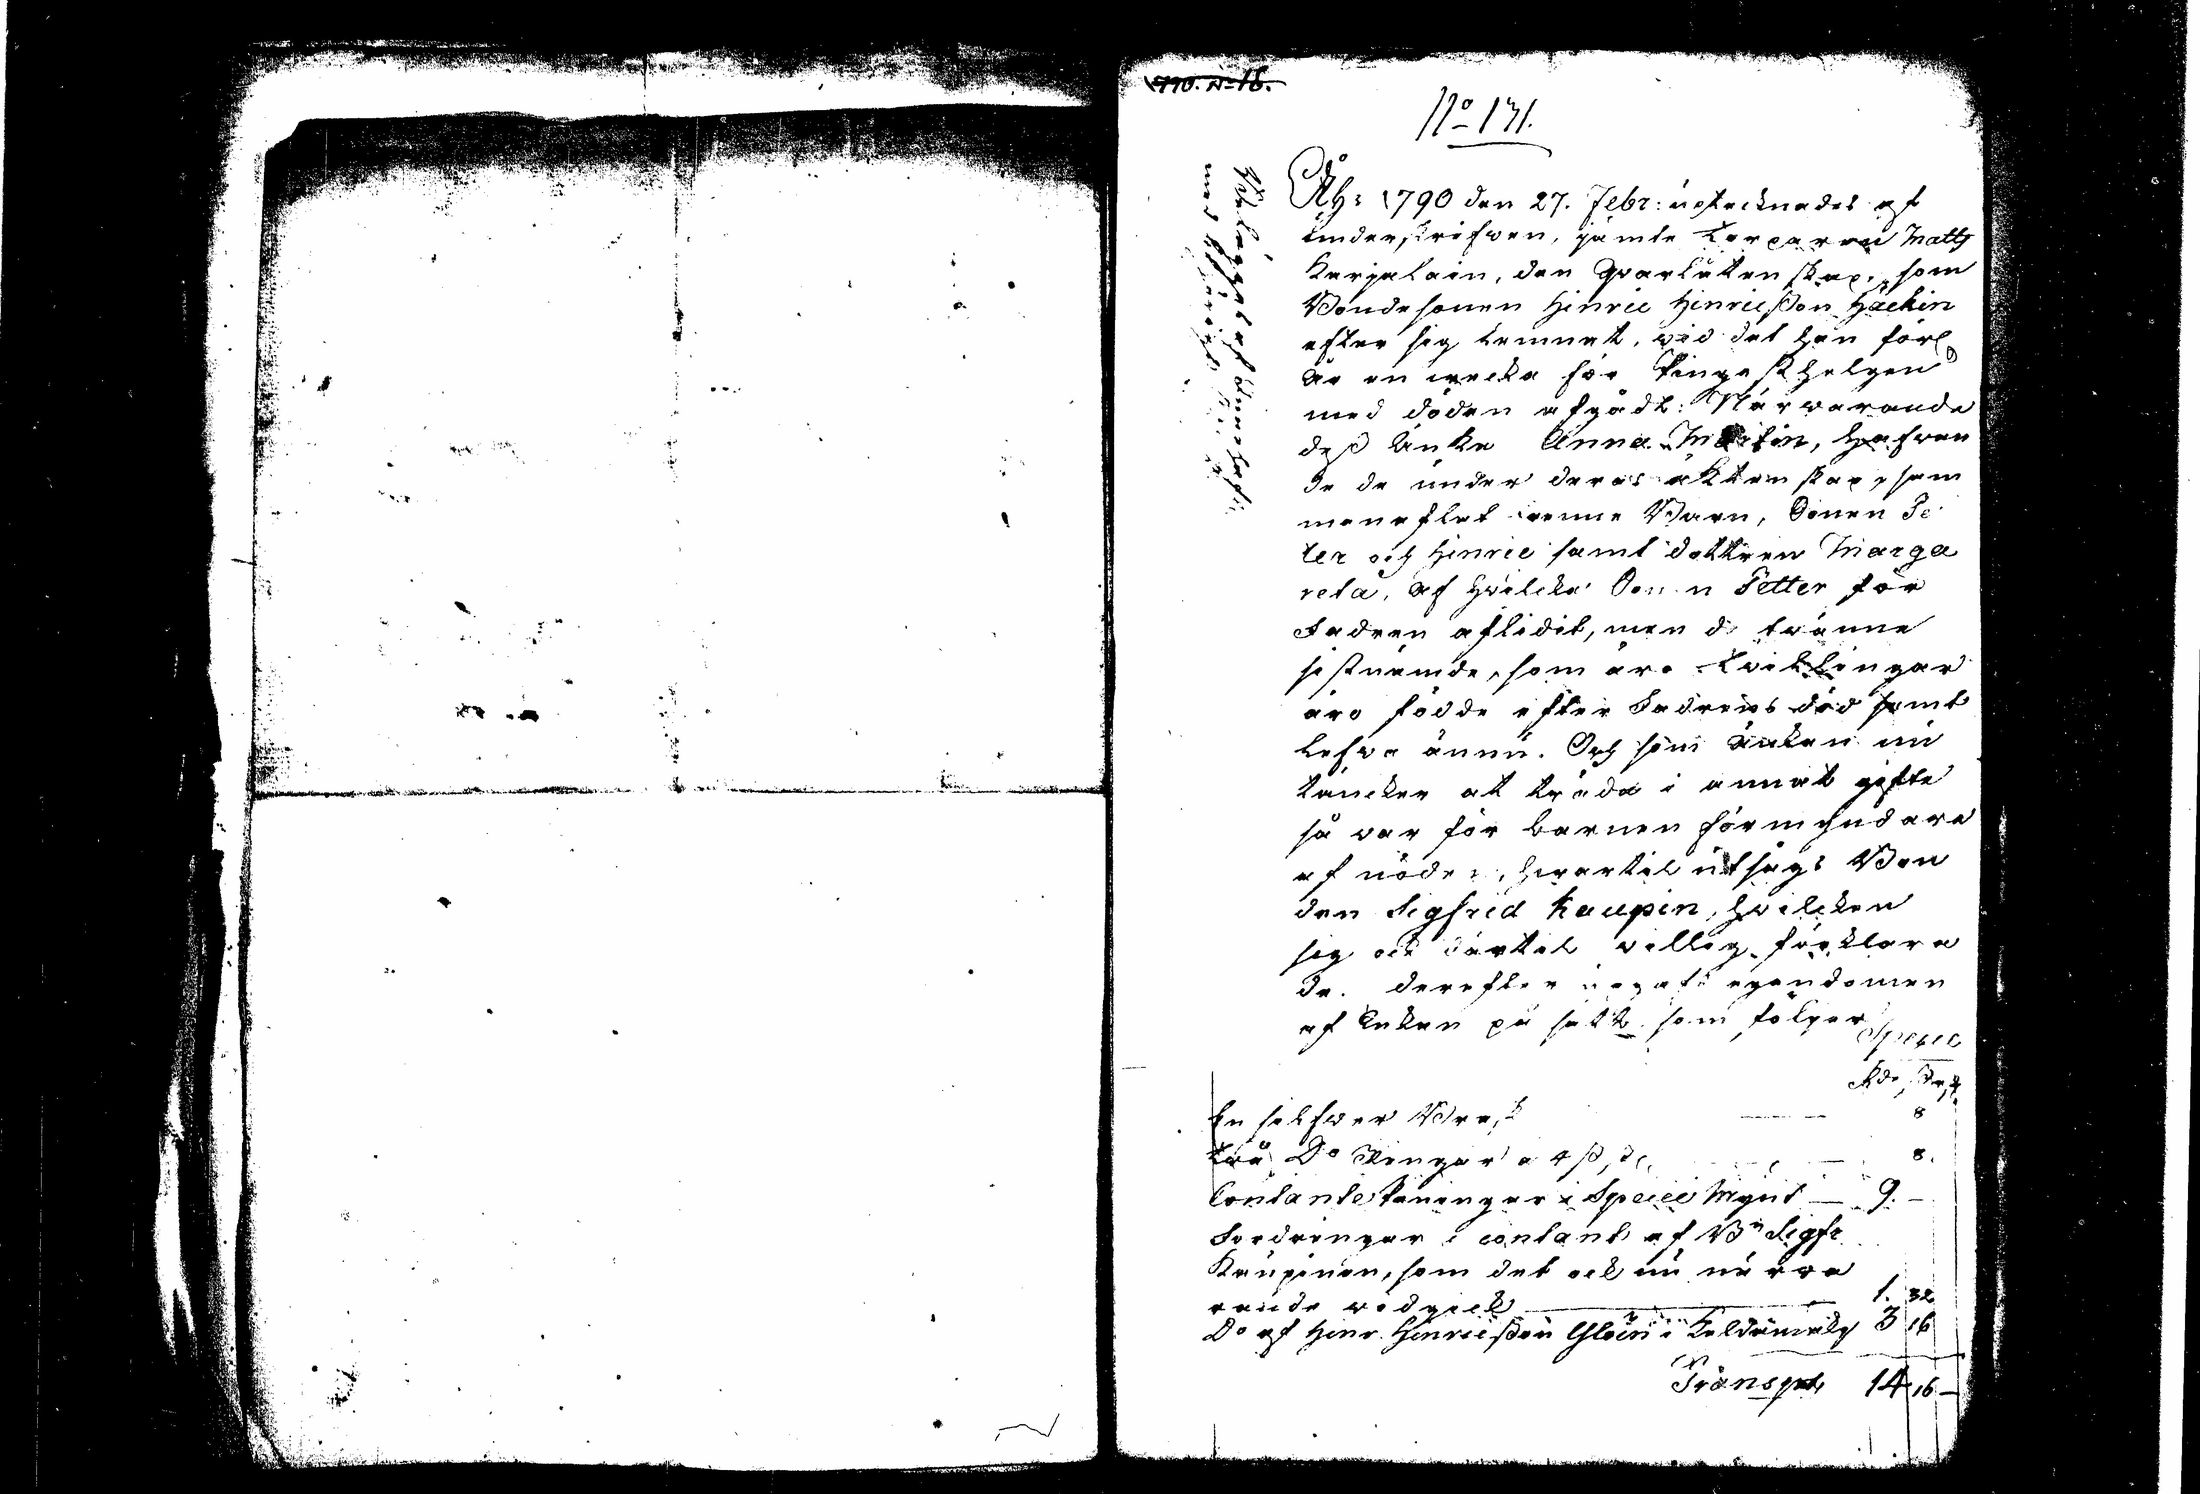 1790. N=16.
No 131.
Åhr 1790 den 27. Febr: upteknades af
underskrifwen, jämte Torparen Matts
Karjalain, den qvarlåtenskap, som
Bondesonen Hinric Hinricsson Häckin
efter sig lemnat, wid det han förl.
år en wecka för Pingesthelgen
med döden afgådt: Närwarande
dess Änka Anna Martin, hafwan
de de under deras äktenskap, sam
manaflat trenne Barn, Sonen Pe
ter och Hinric samt dottren Marga
reta, af hwilcka Sonen Petter för
Fadren aflidit, men de tvänne
sistnämde, som äro tvillingar
äro födde efter Fadrens död samt
lefwa ännu. Och som änkan nu
täncker at träda i annat gifte
så war för barnen förmyndare
af nöden, hwartil utsågs Bon
den Sigfrid Kaupin, hwilcken
sig ock därtil willig förklara
de. derefter upgafs egendomen
af Enkan på sätt som följer
Specie
Rdr, sk, r
En silfwer Bra,k
Två Do Ringar a 4 s, st. 8.
Contante Peningar i Specie Mynt 9. –
Fordringar i contant af Bn Sigfr
Kaupinen, som det ock nu närwa
rande widgick 1. 32
Do af Hinr. Hinricsson i 3 16
Transpt 14 16 –